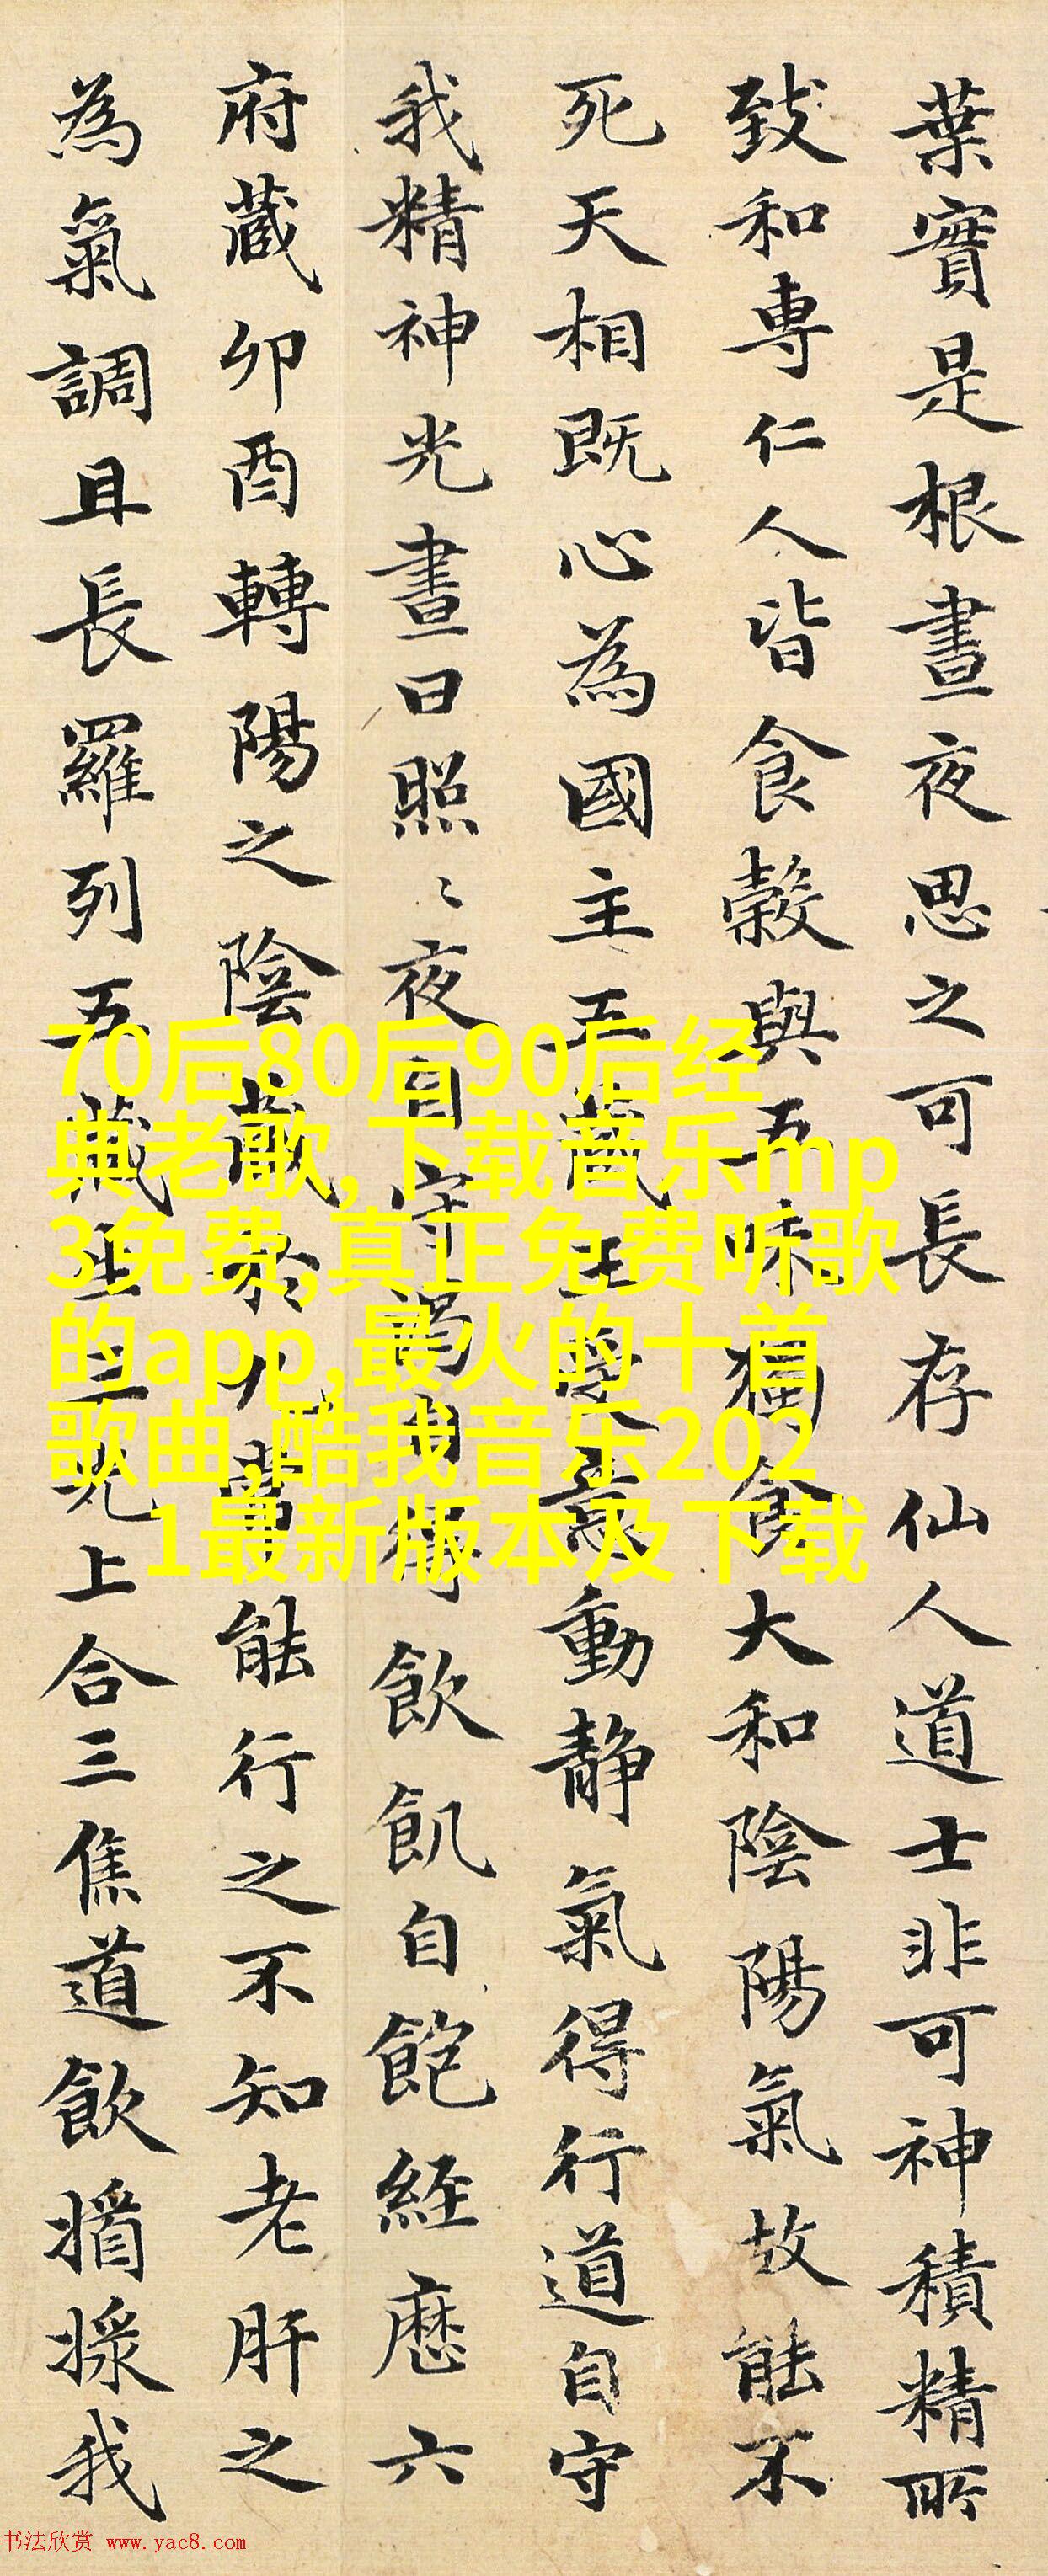 葉實是根晝夜思之可長存仙人道士非可神積精所
致和專仁人皆食穀與五味獨食大和陰陽氣故能不
死天相既心為國主五藏王受意動静氣得行道自守
我精神光晝日照〻夜自守渴自得飲飢自飽經歷六
府藏卯酉轉陽之陰藏於九常能行之不知老肝之
為氣調且長羅列五藏主三光上合三焦道飲
我
70后80后90后经
典老歌,下载音乐mp
3免费,真正免费听歌
的app,最火的十首
歌曲,酷我音乐202
1最新版本及下载
书法欣赏 www.yac8.com